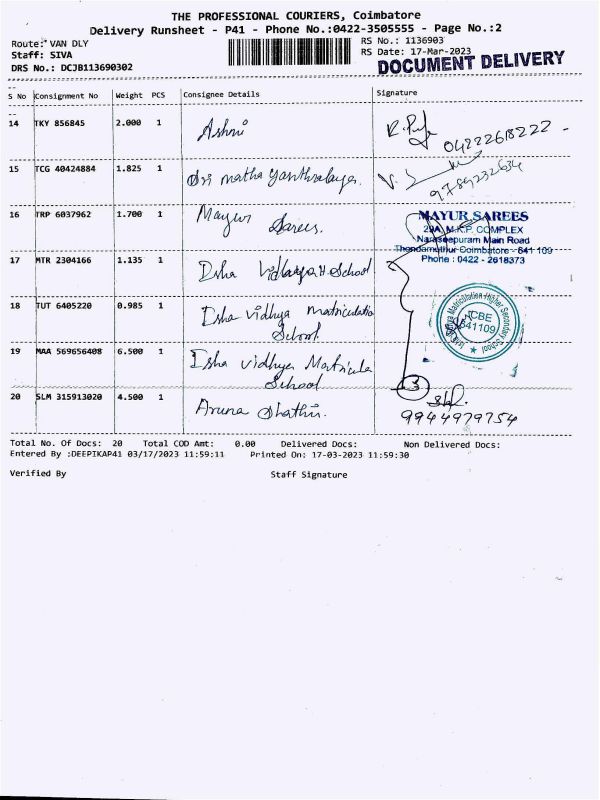 THE PROFESSIONAL COURIERS, Coimbatore
Delivery Runsheet - P41 - Phone No.:0422-3505555 - Page No.:2
Route: VAN DLY RS No.: 1136903
Staff: SIVA RS Date: 17-Mar-2023
DRS No.: DCJB113690302 DOCUMENT DELIVERY
S No Consignment No Weight PCS Consignee Details Signature
14 TKY 856845 2.000 1 Ashni 04222618222 -
15 TCG 40424884 1.825 1 Sri matha 9789232634
16 TRP 6037962 1.700 1 Mayur Sarees.
MAYUR SAREES
29A, M.K.P. COMPLEX
Naraseepuram Main Road
Thondamuthur Coimbatore - 641 109
Phone : 0422 - 2618373
17 MTR 2304166 1.135 1 Isha Vidhya H School
18 TUT 6405220 0.985 1 Isha Vidhya matriculatio
School
CBE
641109
Matriculation Higher Secondary School
19 MAA 569656408 6.500 1 Isha Vidhya Matricula
School
3
20 SLM 315913020 4.500 1 Aruna
9944979754
Total No. Of Docs: 20 Total COD Amt: 0.00 Delivered Docs: Non Delivered Docs:
Entered By :DEEPIKAP41 03/17/2023 11:59:11 Printed On: 17-03-2023 11:59:30
Verified By Staff Signature